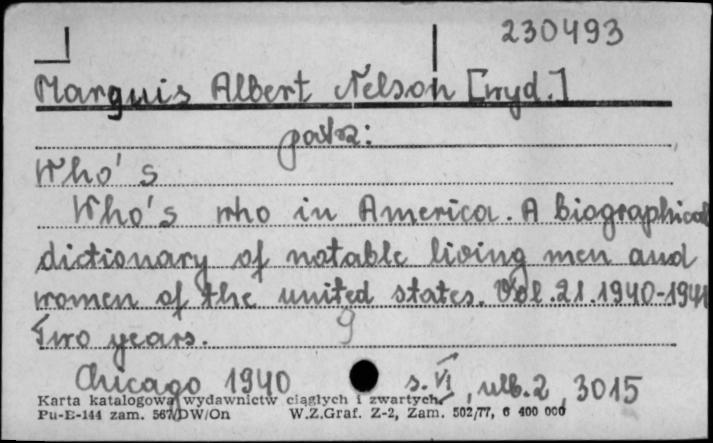 230493
Marguis Albert Nelson [wyd.]
patrz:
Who's
Who's who in America. A biographical
dictionary of notable living men and
women of the united states. Vol. 21. 1940-1941
Two years. 9
Chicago 1940 s. VI, ulb. 2, 3015
Karta katalogowa wydawnictw ciągłych i zwartych
Pu-E-144 zam. 567/DW/On W.Z.Graf. Z-2, Zam. 502/77, 6 400 000